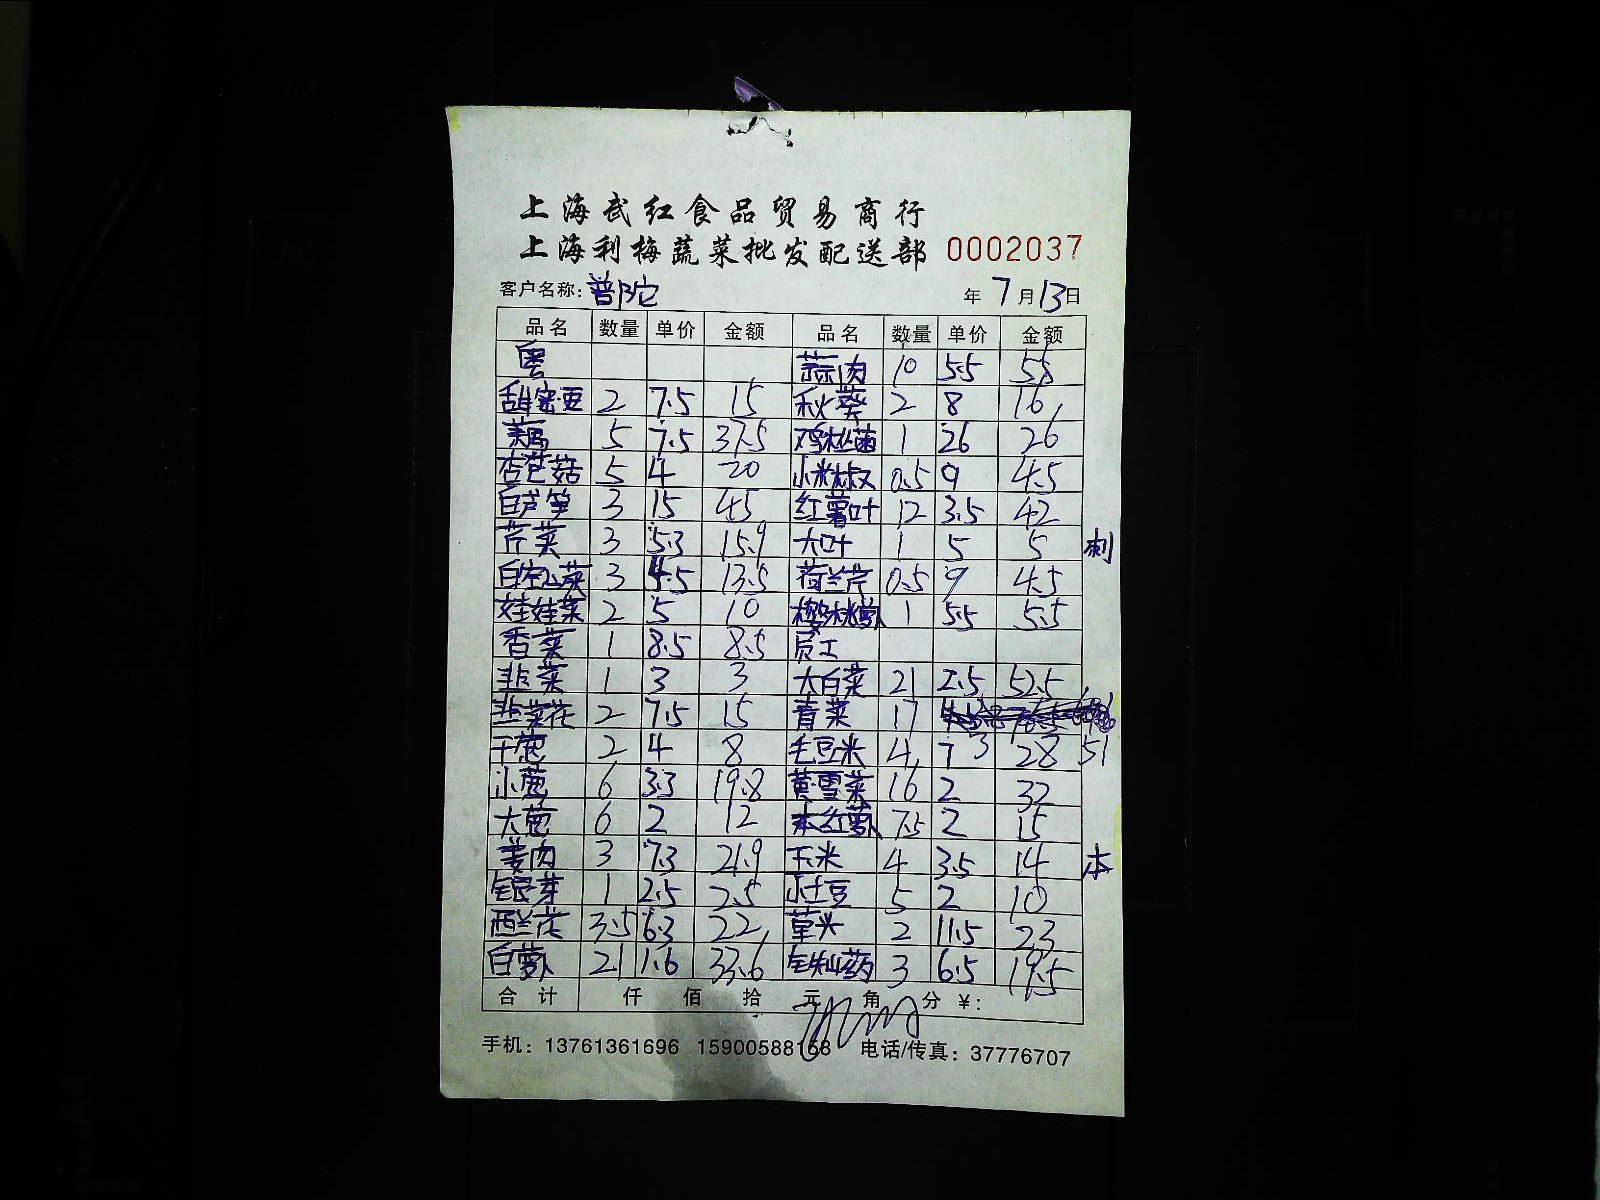 上海武红食品贸易商行
上海利梅蔬菜批发配送部 0002037
客户名称: 普陀 年 7 月 13 日
品名 数量 单价 金额 品名 数量 单价 金额
粤 蒜肉 10 5.5 55
甜蜜豆 2 7.5 15 秋葵 2 8 16
5 7.5 37.5 鸡枞菌 1 26 26
杏芭菇 5 4 20 小米椒 0.5 9 4.5
白芦笋 3 15 45 红薯叶 12 3.5 42
芹菜 3 5.3 15.9 大叶 1 5 5 刺
白空心菜 3 4.5 13.5 荷兰芹 0.5 9 4.5
娃娃菜 2 5 10 樱桃萝卜 1 5.5 5.5
香菜 1 8.5 8.5 员工
韭菜 1 3 3 大白菜 21 2.5 52.5
韭菜花 2 7.5 15 青菜 17 3 51
干葱 2 4 8 毛豆米 4 7 28
小葱 6 3.3 19.8 黄雪菜 16 2 32
大葱 6 2 12 本红萝卜 7.5 2 15
姜肉 3 7.3 21.9 玉米 4 3.5 14 本
银芽 1 2.5 2.5 小土豆 5 2 10
西兰花 3.5 6.3 22 草头 2 11.5 23
白萝卜 21 1.6 33.6 铁山药 3 6.5 19.5
合计 仟 佰 拾 元 角 分 ¥:
手机: 13761361696 15900588168 电话/传真: 37776707